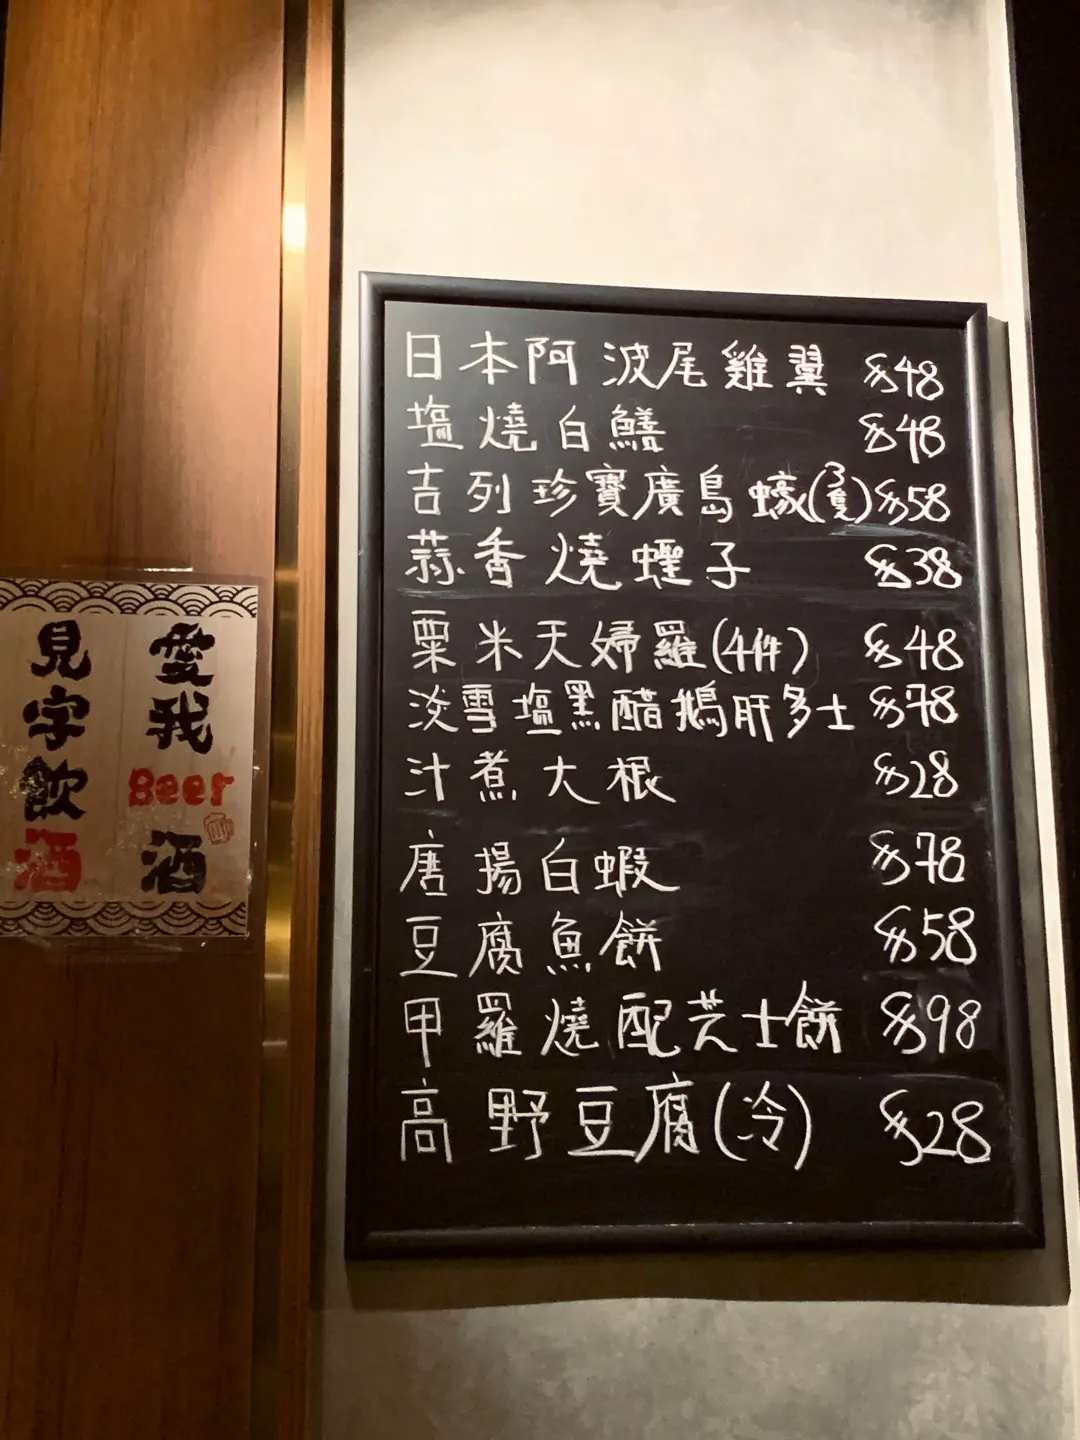 日本阿波尾雞翼 $48
塩燒白鱔 $48
吉列珍寶廣島蠔(3隻) $58
蒜香燒蟶子 $38
粟米天婦羅(4件) $48
淡雪塩黑醋鵝肝多士 $78
汁煮大根 $28
唐揚白蝦 $78
豆腐魚餅 $58
甲羅燒配芝士餅 $98
高野豆腐(冷) $28
愛我Beer酒
見字飲酒